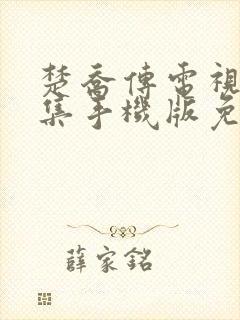 楚喬傳電視
集手機版免
薛家銘